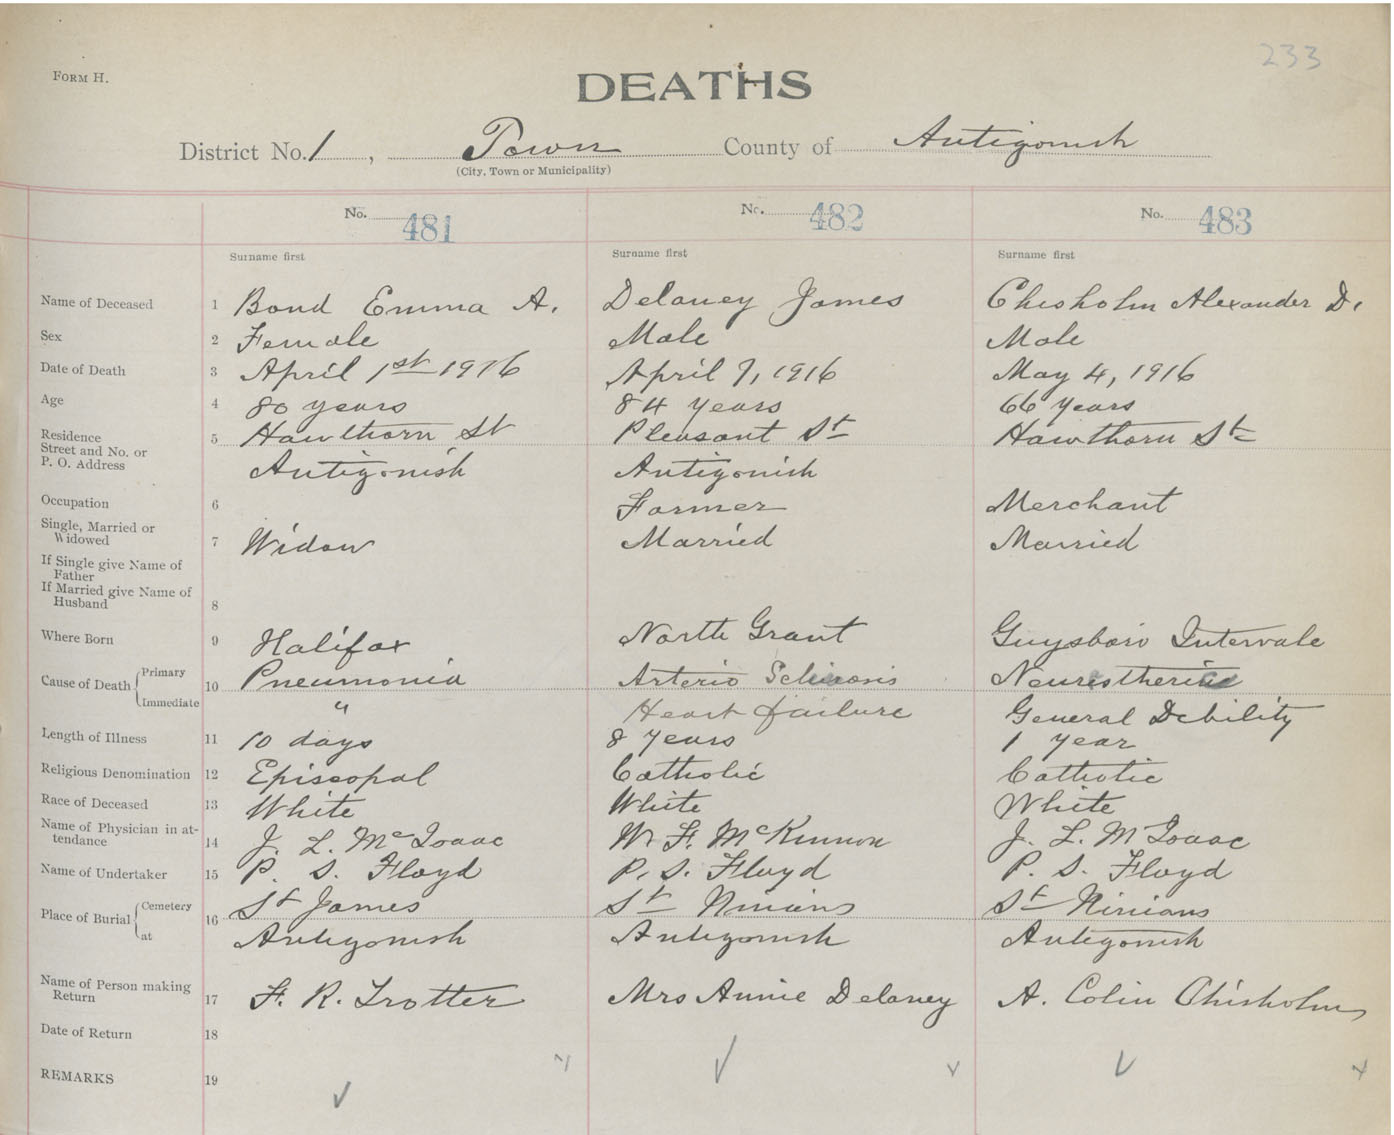 233
Form H.
DEATHS
District No. 1, Town County of Antigonish
(City, Town or Municipality)
No. 481 No. 482 No. 483
Surname first Surname first Surname first
Name of Deceased 1 Bond Emma A. Delaney James Chisholm Alexander D.
Sex 2 Female Male Male
Date of Death 3 April 1st 1916 April 7, 1916 May 4, 1916
Age 4 80 years 84 years 66 years
Residence Street and No. or P. O. Address 5 Hawthorn St Pleasant St Hawthorn St
Antigonish Antigonish
Occupation 6 Farmer Merchant
Single, Married or Widowed 7 Widow Married Married
If Single give Name of Father
If Married give Name of Husband 8
Where Born 9 Halifax North Grant Guysboro Intervale
Cause of Death Primary 10 Pneumonia Arterio
Immediate " Heart failure General Debility
Length of Illness 11 10 days 8 years 1 year
Religious Denomination 12 Episcopal Catholic Catholic
Race of Deceased 13 White White White
Name of Physician in attendance 14 J. L. McIsaac W. F. McKinnon J. L. McIsaac
Name of Undertaker 15 P. S. Floyd P. S. Floyd P. S. Floyd
Place of Burial Cemetery 16 St James St Ninians St Ninians
at Antigonish Antigonish Antigonish
Name of Person making Return 17 F. R. Trotter Mrs Annie Delaney A. Colin Chisholm
Date of Return 18
REMARKS 19